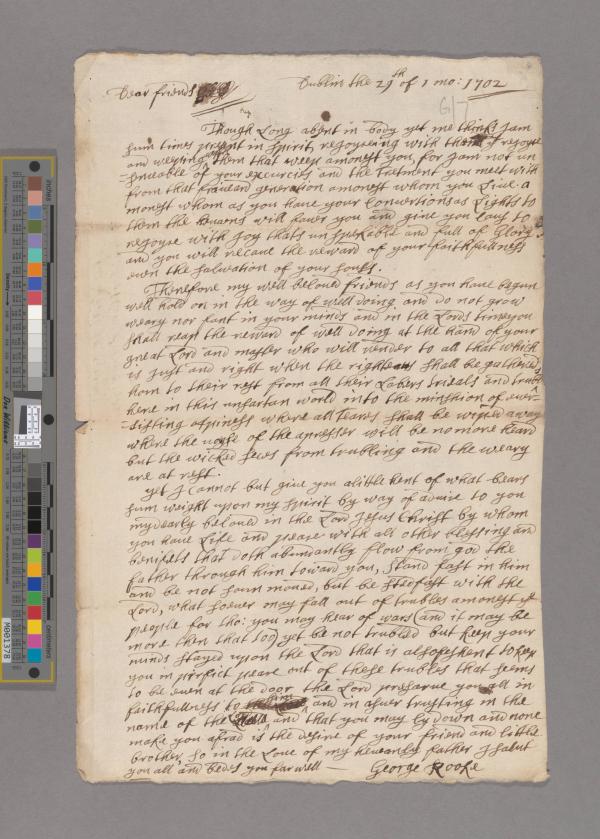 Dear friends
Dublin the 29th of 1 mo: 1702
G17
Though Long absent in body yet me thinks I am
sum times present in spirit, rejoyceing with them rejoyce
and weeping with them that weep amongst you, for I am not un
senceable of your exercises and the tretment you meet with
from that generation amongst whom you Live a
mongst whom as you have your Convertions as Lights to
them the heavens will hauer you and give you caus to
rejoyse with Joy thats un spekable and full of Glory
and you will receive the reward of your faithfullness
even the salvation of your souls.
Therefore my well beloved friends as you have begun
well hold on in the way of well doing and do not grow
weary nor fant in your minds and in the Lords time you
shall reap the reward of well doing at the hand of your
great Lord and master who will render to all that which
is just and right when the righteous shall be gathered
hom to their rest from all their Labers trieals and trubls
here in this unsartan world into the minshion of ever-
where all tears shall be wiped away
where the voyse of the apresser will be no more heard
but the wicked seces from trubling and the weary
are at rest.
yet I cannot but give you a little hent of what bears
sum weight upon my spirit by way of advise to you
my dearly beloved in the Lord Jesus Christ by whom
you have Life and peace with all other blessing and
benifets that doth abundantly flow from god the
father through him toward you, stand fast in him
and be not soun moved, but be stedfast with the
Lord, what soever may fall out of trubles amongst ye
people for tho: you may hear of wars (and it may be
more then that too) yet be not trubled but keep your
minds stayed upon the Lord that is alsofishent to kep
you in pirfict peace out of these trubles that seems
to be even at the door, the Lord presarve you all in
faithfullness to him and in trusting in the
name of the Lord and that you may ly down and none
make you afrad is the desire of your friend and little
brother, so in the Love of my heavenly father I salut
you all and beds you farwell —
George Rooke
inches
centimeters
Don Williams
M001378